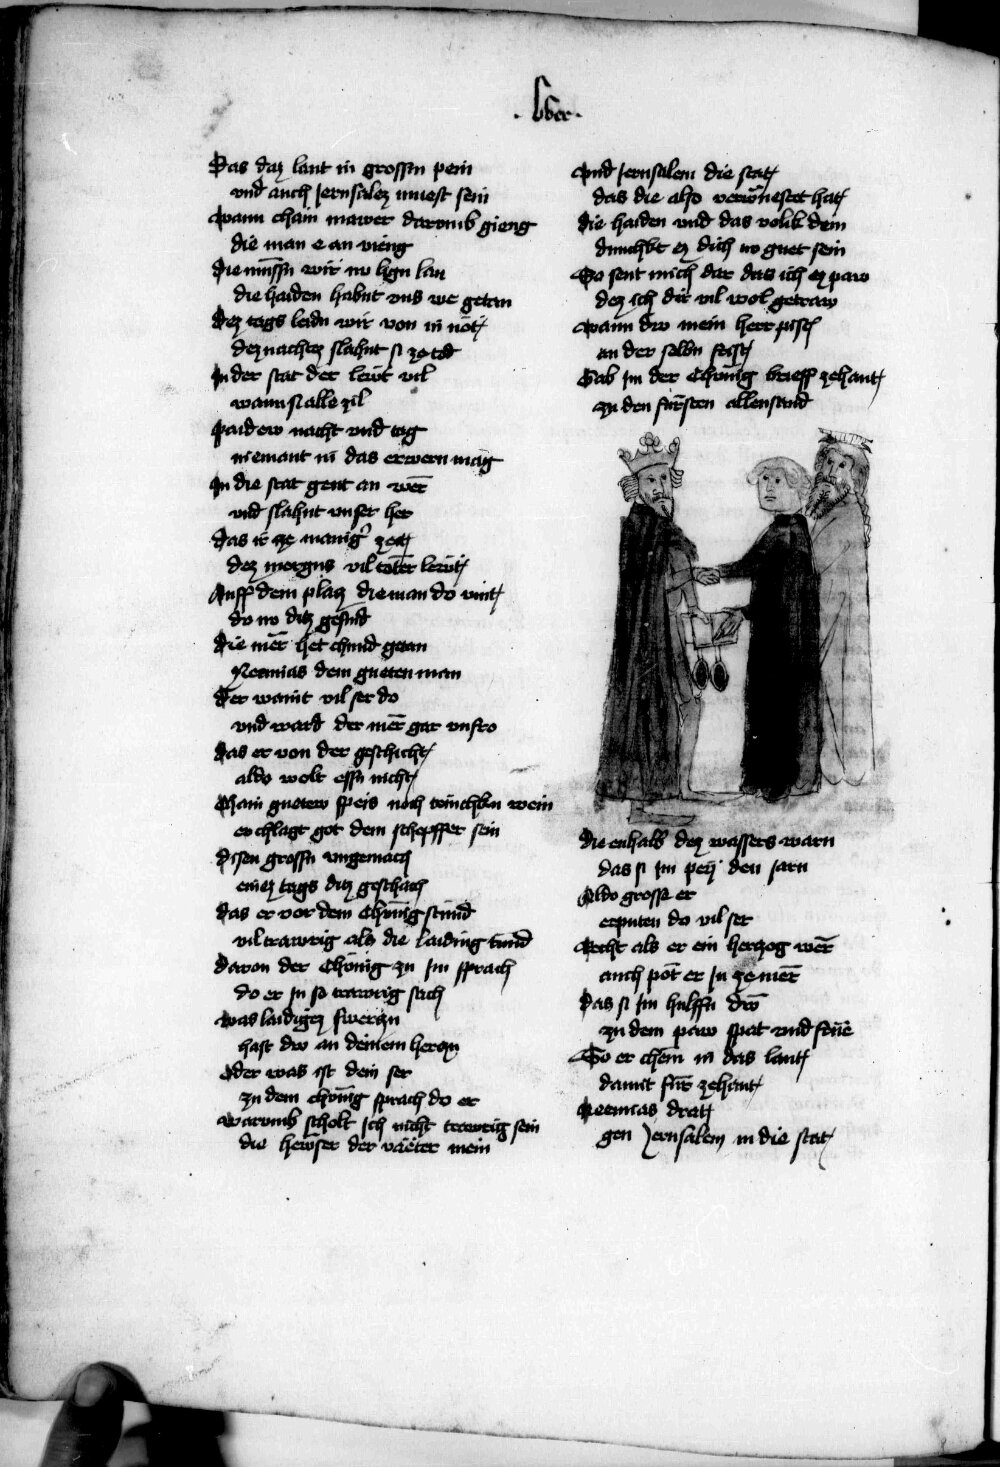 · liber ·
Das daz lant in grossm pein
vnd auch Jerusalez muest sein
Wann chain mawer darumb gieng
die man e an vieng
Die müssn wir nv lign lan
die haiden habnt vns we getan
Dez tags leidn wir von in nöt
dez nachtez slahnt si ze tod
In der stat der lewt vil
wann si alle zil
Paidew nacht vnd tag
niemant in das erwern mag
In die stat gent an wer
vnd slahnt vnser her
Das ir ze manig zeit
dez morgens vil toter lewt
Auff dem platz die man do vint
do nv ditz gesind
Die mer het chund getan
Neemias dem gueten man
Der waint vil ser do
vnd ward der mer gar vnfro
Das er von der geschicht
aldo wolt essn nicht
Chain guetew speis noch trinchkn wein
er chlagt got dem schepffer sein
Disen grossn vngemach
einez tags ditz geschach
Das er vor dem Chünig stund
vil trawrig als die laiding tund
Davon der Chönig zu Im sprach
do er In so trawrig sach
Was laidigez swerzn
hast dw an deinem herczn
Oder was ist dein ser
zu dem chönig sprach do er
Warumb scholt Ich nicht trawrig sein
die hewser der väter mein
Vnd Jerusalem die stat
das die also verwuestet hat
Die haiden vnd das volkk dem
dunchkt ez dich nv guet sein
So sent mich dar das ich ez paw
dez ich dir vil wol getraw
Wann dw mein herr pist
an der selbn frist
Gab Im der Chönig brieff zehant
zu den fürsten allensand
Die enhalb dez wassers warn
das si Im peÿ den Jarn
Aldo grosse er
erputen do vil ser
Recht als er ein herczog wer
auch pot er In ze mer
Das si Im hulffn dro
zu dem paw spat vnd frue
So er chem in das lant
damit für zehant
Neemias drat
gen Jerusalem in die stat